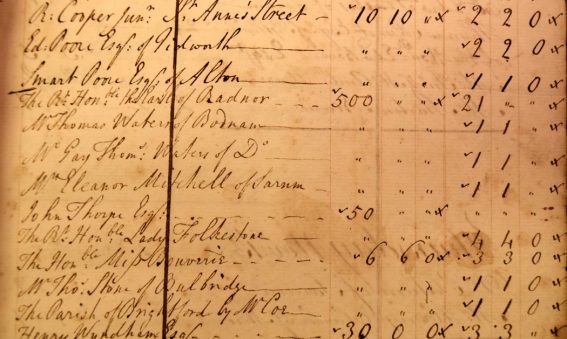 R: Cooper Junr. St. Anne's Street — 10 10 " x 2 2 0 x
Ed: Poore Esqr. of Tedworth — " " " 2 2 0 x
Smart Poore Esqr. of Alton — " " " 1 1 0 x
The Rt. Honble. the Earl of Radnor - 500 " " x 21 " " x
Mr Thomas Waters of Bodnam — " " " 1 1 " x
Mr. Gay Thoms. Waters of Do. — " " " 1 1 " x
Mrs Eleanor Mitchell of Sarum — " " " 1 1 " x
John Thorpe Esqr. - - - - 50 " " x " " "
The Rt. Honble. Lady Folkestone " " " 4 4 0 x
The Honble. Miss Bouverie - - - - 6 6 0 x 3 3 0 x
Mr Thos. Stone of Bulbridge — " " " 1 1 0 x
The Parish of Brightford by Mr Coe — " " " 1 1 0 x
Henry Wyndham Esqr. - - - 30 0 0 x 3 3 " x